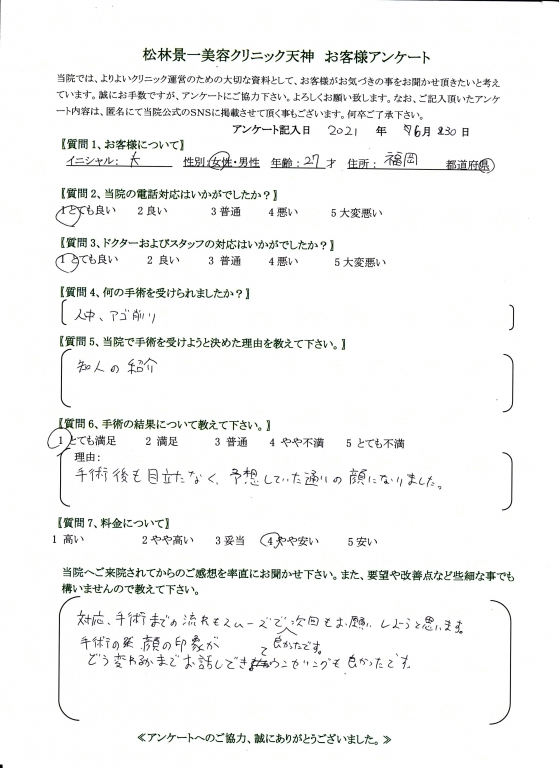 松林景一美容クリニック天神 お客様アンケート
当院では、よりよいクリニック運営のための大切な資料として、お客様がお気づきの事をお聞かせ頂きたいと考え
ています。誠にお手数ですが、アンケートにご協力下さい。よろしくお願い致します。なお、ご記入頂いたアンケ
ート内容は、匿名にて当院公式のSNSに掲載させて頂く事もございます。何卒ご了承下さい。
アンケート記入日 2021 年 6月 30日
〖質問1、お客様について〗
イニシャル： 性別：女性・男性 年齢：27才 住所： 福岡 都道府県
〖質問2、当院の電話対応はいかがでしたか？〗
1とても良い 2良い 3普通 4悪い 5大変悪い
〖質問3、ドクターおよびスタッフの対応はいかがでしたか？〗
1とても良い 2 良い 3 普通 4悪い 5大変悪い
〖質問4、何の手術を受けられましたか？〗
人中、アゴ削り
〖質問5、当院で手術を受けようと決めた理由を教えて下さい。〗
知人の紹介
〖質問6、手術の結果について教えて下さい。〗
1とても満足 2 満足 3 普通 4 やや不満 5 とても不満
理由：
手術後も目立たなく、予想していた通りの顔になりました。
〖質問7、料金について〗
1 高い 2やや高い 3妥当 4やや安い 5安い
当院へご来院されてからのご感想を率直にお聞かせ下さい。また、要望や改善点など些細な事でも
構いませんので教えて下さい。
対応、手術までの流れもスムーズで次回もお願いしようと思います。
良かったです。
手術の 顔の印象が
どう変わるかまでお話しできて カウンセリングも良かったです。
≪アンケートへのご協力、誠にありがとうございました。≫